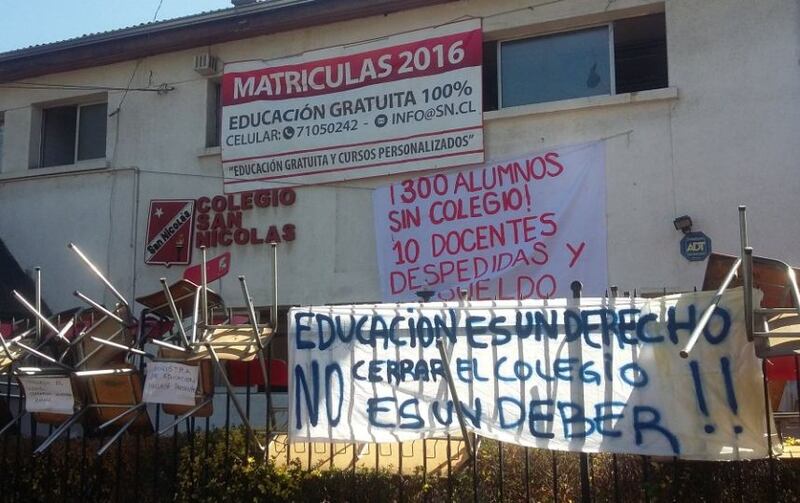 MATRICULAS 2016
EDUCACIÓN GRATUITA 100%
CELULAR: 71050242 - INFO@SN.CL
"EDUCACIÓN GRATUITA Y CURSOS PERSONALIZADOS"
San Nicolás
COLEGIO
SAN
NICOLAS
¡300 ALUMNOS
SIN COLEGIO!
10 DOCENTES
DESPEDIDAS Y
SUELDO
ADT
EDUCACIÓN ES UN DERECHO
NO CERRAR EL COLEGIO
ES UN DEBER!!
MINISTRA
DE EDUCACIÓN